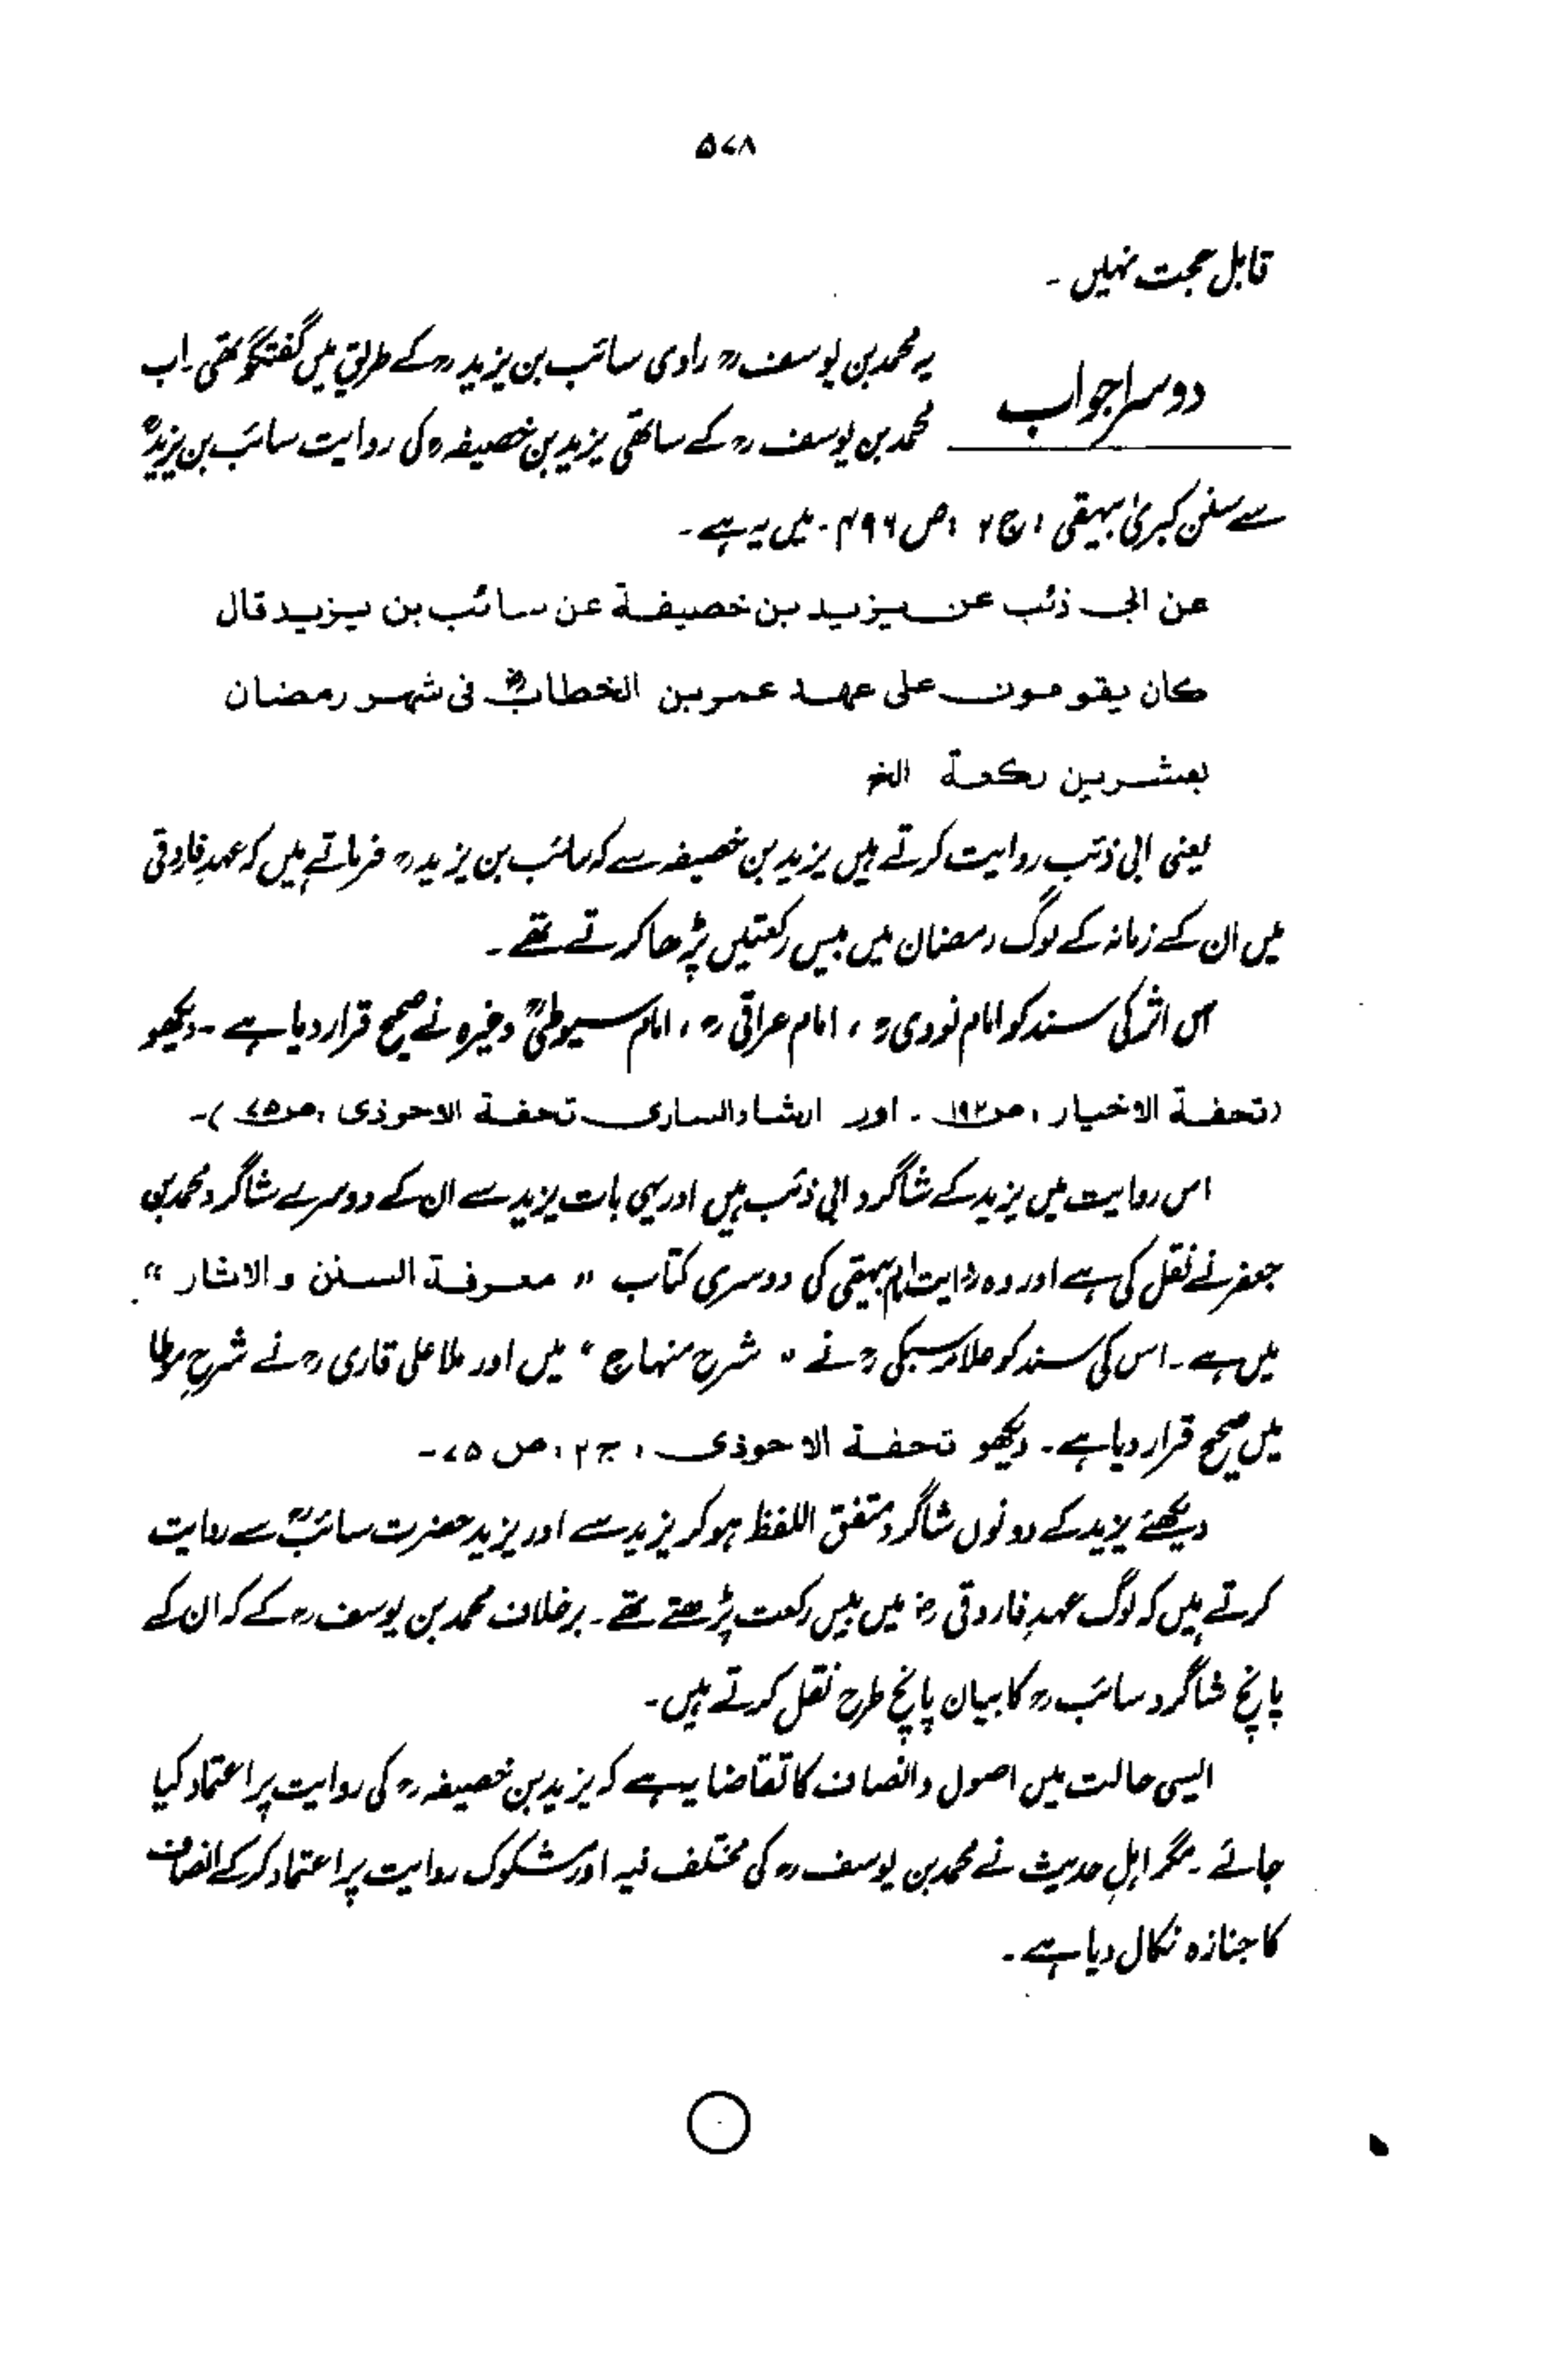 ۵۷۸
قابل حجت نہیں ۔
دوسرا جواب
یہ محمد بن یوسفؒ راوی سائب بن یزیدؒ کے طریق میں گفتگو تھی ۔ اب
محمد بن یوسفؒ کے ساتھی یزید بن خصیفہؒ کی روایت سائب بن یزیدؓ
سے سنن کبریٰ بیہقی ، ج ۲ ، ص ۴۹۶ ۔ میں یہ ہے ۔
عن ابی ذئب عن یزید بن خصیفة عن سائب بن یزید قال
کان یقومون علی عهد عمر بن الخطابؓ فی شهر رمضان
بعشرین رکعة الخ
یعنی ابی ذئب روایت کرتے ہیں یزید بن خصیفہ سے کہ سائب بن یزیدؒ فرماتے ہیں کہ عہدِ فاروقی
میں ان کے زمانہ کے لوگ رمضان میں بیس رکعتیں پڑھا کرتے تھے ۔
اس اثر کی سند کو امام نوویؒ ، امام عراقیؒ ، امام سیوطیؒ وغیرہ نے صحیح قرار دیا ہے ۔ دیکھو
(تحفة الاخیار ، ص ۱۹۲ ۔ اور ارشاد الساری تحفة الاحوذی ، ص ۷۵ )۔
اس روایت میں یزید کے شاگرد ابی ذئب ہیں اور یہی بات یزید سے ان کے دوسرے شاگرد محمد بن
جعفر نے نقل کی ہے اور وہ روایت امام بیہقی کی دوسری کتاب " معرفة السنن والاثار "
میں ہے ۔ اس کی سند کو علامہ سبکیؒ نے " شرح منہاج " میں اور ملا علی قاریؒ نے شرحِ موطا
میں صحیح قرار دیا ہے ۔ دیکھو تحفة الاحوذی ، ج ۲ ، ص ۷۵ ۔
دیکھئے یزید کے دونوں شاگرد متفق اللفظ ہو کر یزید سے اور یزید حضرت سائبؒ سے روایت
کرتے ہیں کہ لوگ عہدِ فاروقیؓ میں بیس رکعت پڑھتے تھے ۔ برخلاف محمد بن یوسفؒ کے کہ ان کے
پانچ شاگرد سائبؒ کا بیان پانچ طرح نقل کرتے ہیں ۔
ایسی حالت میں اصول و انصاف کا تقاضا یہ ہے کہ یزید بن خصیفہؒ کی روایت پر اعتماد کیا
جائے ۔ مگر اہلِ حدیث نے محمد بن یوسفؒ کی مختلف فیہ اور مشکوک روایت پر اعتماد کر کے انصاف
کا جنازہ نکال دیا ہے ۔